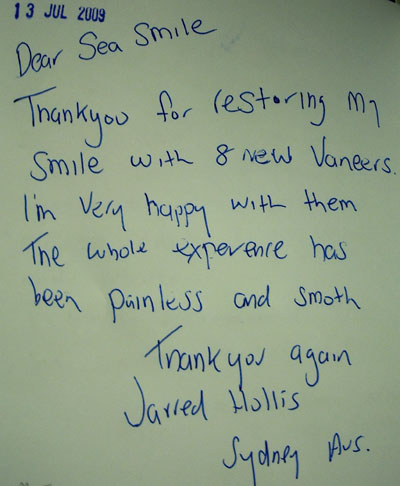 13 JUL 2009
Dear Sea Smile
Thankyou for restoring my
Smile with 8 new Vaneers.
I'm very happy with them
The whole experence has
been painless and smoth
Thankyou again
Jarred Hollis
Sydney Aus.